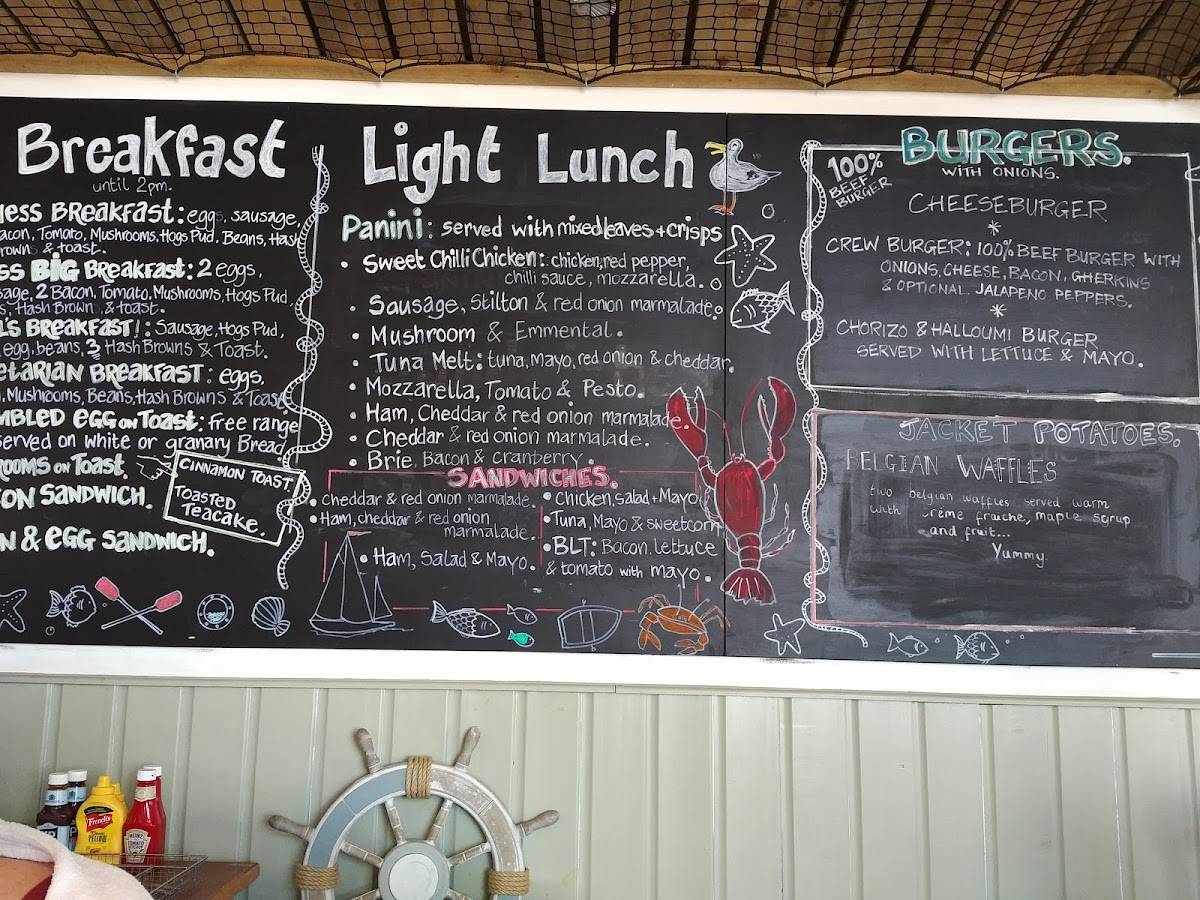 Breakfast
until 2pm.
BREAKFAST: eggs, sausage,
Tomato, Mushrooms, Hogs Pud, Beans, Hash
& toast.
BIG BREAKFAST: 2 eggs,
2 Bacon, Tomato, Mushrooms, Hogs Pud,
Hash Brown & toast.
BREAKFAST!: Sausage, Hogs Pud,
egg, beans, 3 Hash Browns & Toast.
BREAKFAST: eggs,
Mushrooms, Beans, Hash Browns & Toast
EGG ON TOAST: Free range
served on white or granary Bread
ON TOAST.
SANDWICH.
& EGG SANDWICH.
CINNAMON TOAST
TOASTED
TEACAKE.
Light Lunch
Panini: served with mixed leaves + crisps
• Sweet Chilli Chicken: chicken, red pepper,
chilli sauce, mozzarella.
• Sausage, Stilton & red onion marmalade.
• Mushroom & Emmental.
• Tuna Melt: tuna, mayo, red onion & cheddar.
• Mozzarella, Tomato & Pesto.
• Ham, Cheddar & red onion marmalade.
• Cheddar & red onion marmalade.
• Brie, Bacon & cranberry.
SANDWICHES.
• Cheddar & red onion marmalade.
• Ham, cheddar & red onion
marmalade.
• Ham, Salad & Mayo.
• Chicken, salad + Mayo
• Tuna, Mayo & sweetcorn
• BLT: Bacon, lettuce
& tomato with mayo.
BURGERS.
WITH ONIONS.
100%
BEEF
BURGER
CHEESEBURGER
*
CREW BURGER: 100% BEEF BURGER WITH
ONIONS, CHEESE, BACON, GHERKINS
& OPTIONAL JALAPENO PEPPERS.
*
CHORIZO & HALLOUMI BURGER
SERVED WITH LETTUCE & MAYO.
JACKET POTATOES.
BELGIAN WAFFLES
two belgian waffles served warm
with creme fraiche, maple syrup
and fruit...
Yummy.
French's
YELLOW
HEINZ
TOMATO